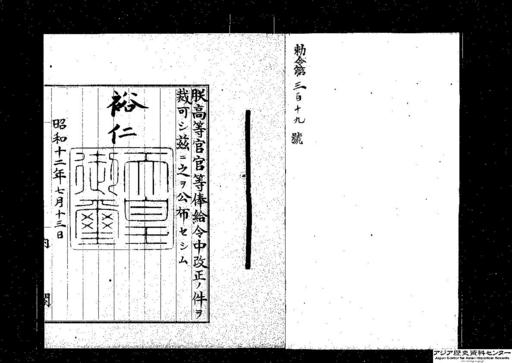 勅令第三百十九號
朕高等官官等俸給令中改正ノ件ヲ
裁可シ茲ニ之ヲ公布セシム
裕仁
天皇
御璽
昭和十二年七月十三日
内閣
アジア歴史資料センター
Japan Center for Asian Historical Records